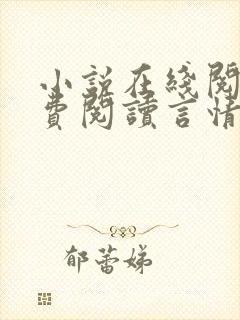 小説在綫閱
費閱讀言情
郁蕾娣